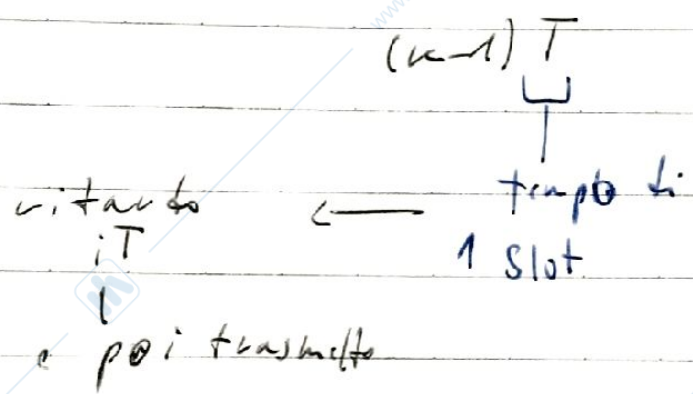 (k-1) T
tempo di
1 slot
ritardo
iT
e poi trasmetto